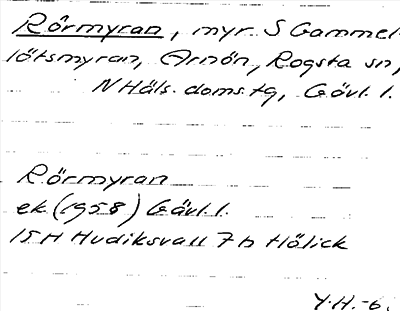 Rörmyran, myr S Gammel-
lötsmyran, Arnön, Rogsta sn,
N Häls. doms.tg, Gävl. l.
Rörmyran
ek. (1958) Gävl. l.
15H Hudiksvall 7b Hölick
Y.H.-6